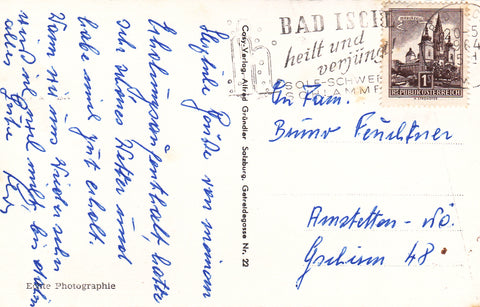 Herzliche Grüße von meinem
Erholungsaufenthalt, hatte
sehr schönes Wetter und
habe mich gut erholt.
Wann wir uns wieder sehn
weiß ich noch nicht, bis dahin
alles Gute
Echte Photographie
Cosy-Verlag, Alfred Gründler Salzburg, Getreidegasse Nr. 22
BAD ISCHL
heilt und
verjüngt
SOLE-SCHWEFEL
SCHLAMM
REPUBLIK ÖSTERREICH
An Fam.
Bruno Feuchtner
Amstetten - NÖ.
48